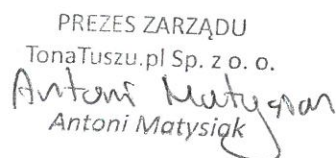 PREZES ZARZĄDU
TonaTuszu.pl Sp. z o. o.
Antoni Matysiak
Antoni Matysiak